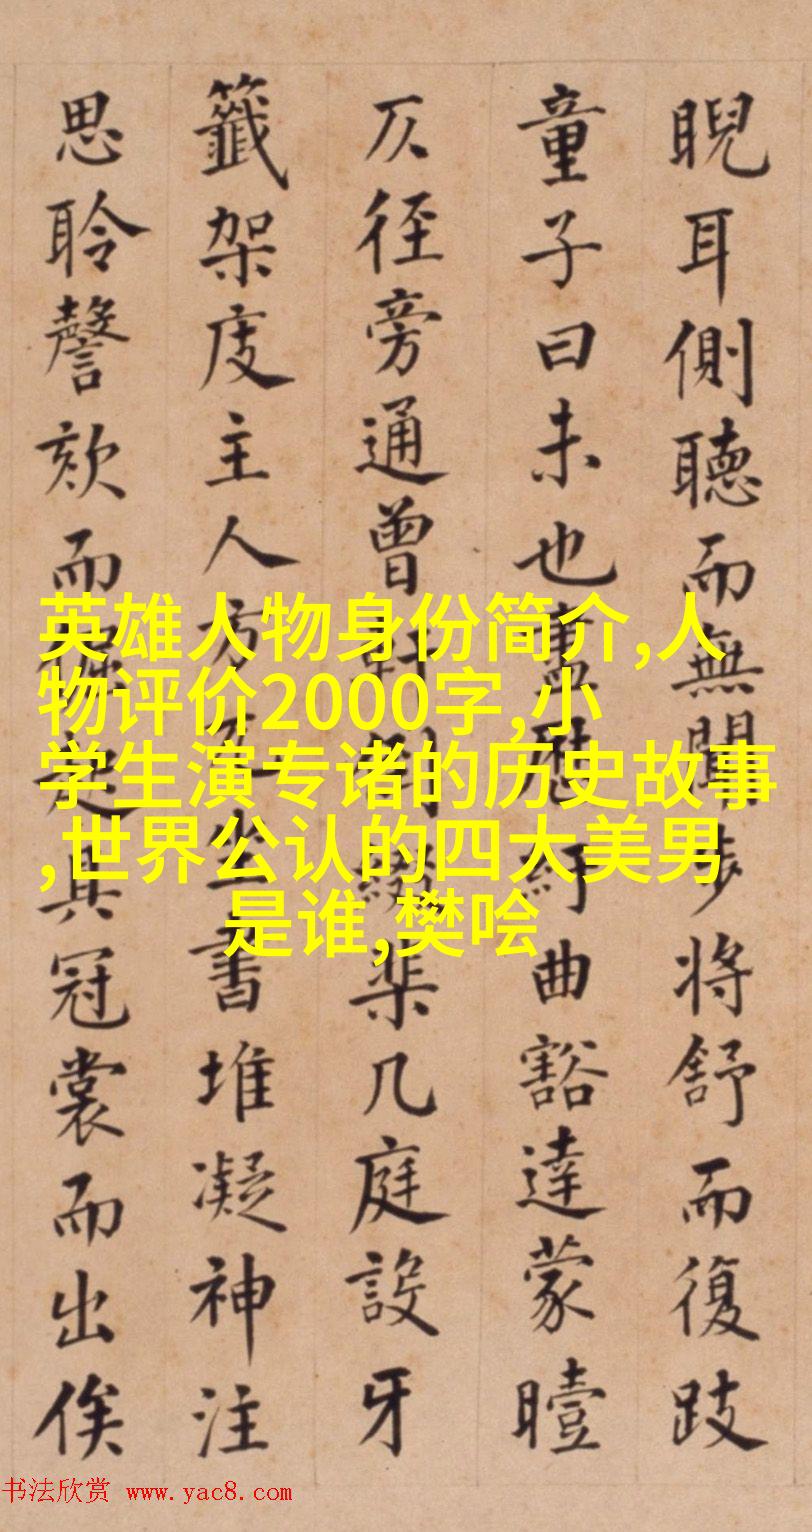 睨耳側聽而無聞步將舒而復跂
童子曰未也畫歷紆曲豁達蒙曀
仄徑旁通曾 几庭設牙
籤架庋主人方 坐書堆凝神注
思聆謦欬而 起具冠裳而出俟
英雄人物身份简介,人
物评价2000字,小
学生演专诸的历史故事
,世界公认的四大美男
是谁,樊哙
书法欣赏 www.yac8.com